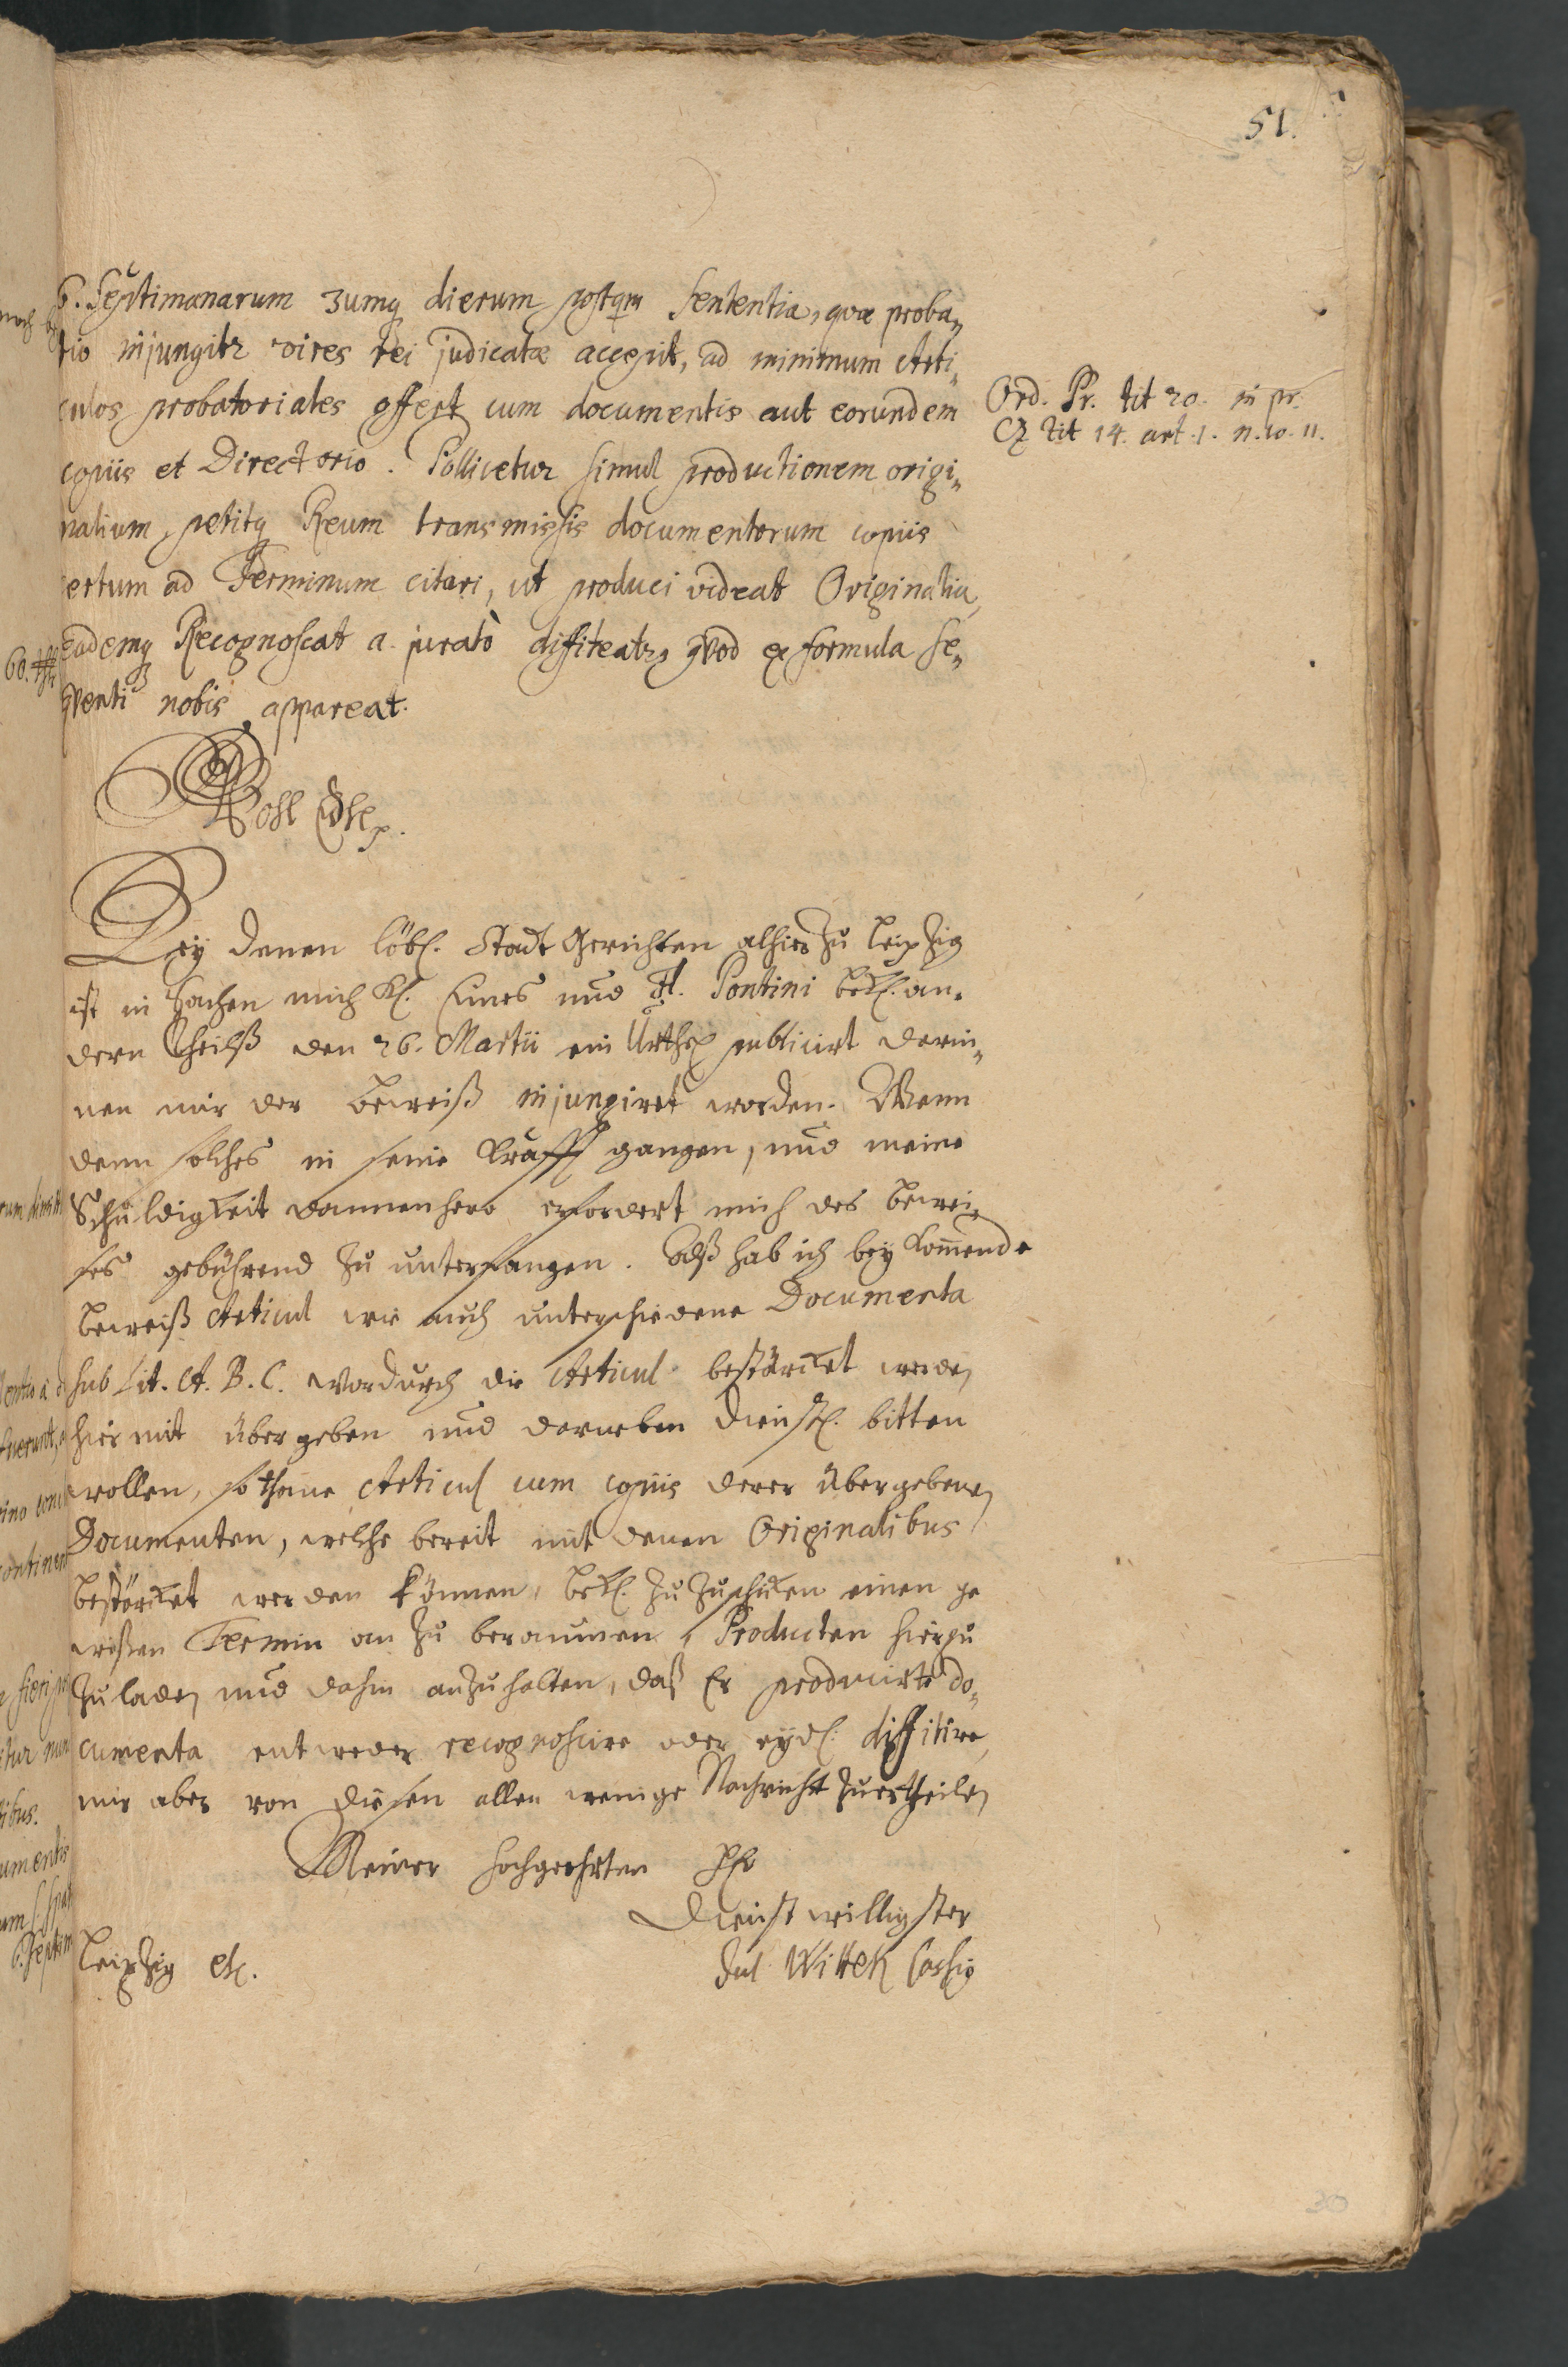 51.
6. Septimanarum 3umq dierum postqm sententia, qvæ proba„
tio injungitr vires rei judicatæ accepit, ad minimum Arti„
culos probatoriales offert cum documentis aut eorundem
copiis et Directorio. Pollicetur simul productionem origi„
nalium, petitq Reum transmissis documentorum copiis
certum ad Terminum citari, ut produci videat Originalia,
eademq Recognoscat a. jurato diffiteatr, qvod ex formula se„
qventi nobis appareat.
Ord. Pr. tit 20. in pr.
Cz tit 14. art. 1. n. 10. 11.
Wohl Edle p.
Bey denen löbl. Stadt Gerichten alhier zu Leipzig
ist in Sachen mich Kl. Eines und H. Pontini Bekl. an„
dern Theilß den 26. Martii ein Urthel publicirt darin„
nen mir der Beweiß injungiret worden. Wenn
denn solches in seine Krafft gangen, und meine
Schuldigkeit dannenhero erfordert mich des Bewei„
ses gebührend zu unterfangen. Alß hab ich bey kommende
Beweiß Articul wie auch unterschiedene Documenta
sub Lit. A. B. C. wordurch die Articul bestärcket werden
hiermit übergeben und darneben dienstl. bitten
wollen, sothane Articul cum copiis derer übergebenen
Documenten, welche bereit mit denen Originalibus
bestärcket werden können, Bekl. zu zuschicken einen ge
wißen Termin an zu beraumen, Producten hierzu
zu laden und dahin anzuhalten, daß Er producirte do„
cumenta entweder recognoscire oder eydl. diffitire,
mir aber von diesen allen wenige Nachricht zuertheilen
Meiner hochgeehrten HHr
Dienstwilligster
Leipzig etc.